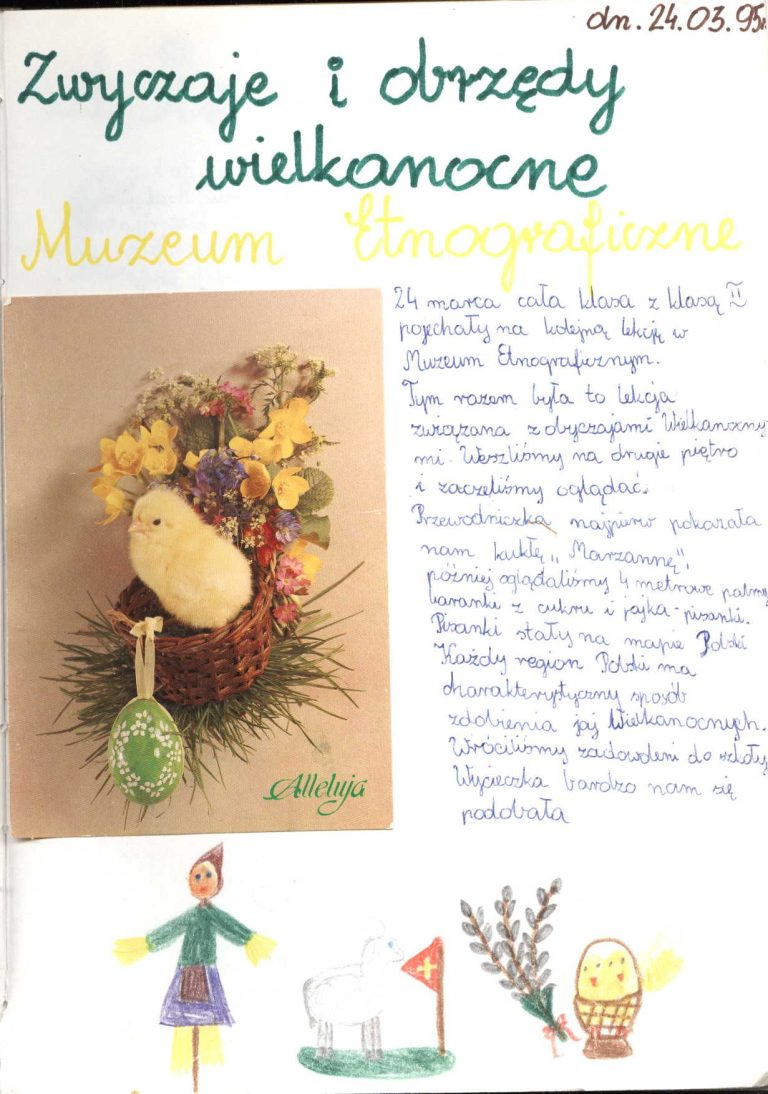 dn. 24.03.95r.
Zwyczaje i obrzędy
wielkanocne
Muzeum Etnograficzne
24 marca cała klasa z klasą II
pojechały na kolejną lekcję w
Muzeum Etnograficznym.
Tym razem była to lekcja
związana z obyczajami Wielkanocny
mi. Weszliśmy na drugie piętro
i zaczeliśmy oglądać.
Przewodniczka najpierw pokazała
nam kukłę „Marzannę",
później oglądaliśmy 4 metrowe palmy
baranki z cukru i jajka-pisanki.
Pisanki stały na mapie Polski
Każdy region Polski ma
charakterystyczny sposób
zdobienia jaj Wielkanocnych.
Wróciliśmy zadowoleni do szkoły
Wycieczka bardzo nam się
podobała
Alleluja